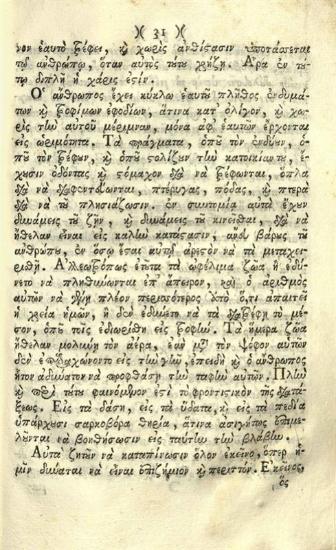 )( 31 )(
νον ἑαυτὸ τρέφει, ϗ χωρὶς ἀνθίστασιν ὑποτάσσεται
τῷ ἀνθρώπῳ, ὅταν αὐτὸς τότε χρήζῃ. Ἄρα ἐν τού-
τῳ διπλῆ ἡ χάρις ἐστίν.
Ὁ ἄνθρωπος ἔχει κύκλῳ ἑαυτοῦ πλῆθος ἐνδυμά-
των ϗ τροφίμων ἐφοδίων, ἅτινα κατ' ὀλίγον, ϗ χω-
ρὶς τὴν αὐτοῦ μέριμναν, μόνα ἀφ' ἑαυτῶν ἔρχονται
εἰς ὡριμότητα. Τὰ πράγματα, ὁποῦ τὸν ἐνδύουν, ὁ-
ποῦ τὸν τρέφουν, ϗ ὁποῦ στολίζουν τὴν κατοικίαν του, ἔ-
χουσιν ὀδόντας ϗ στόμαχον διὰ νὰ τρέφωνται, ὅπλα
διὰ νὰ διαφεντεύωνται, πτέρυγας, πόδας, ϗ πτερὰ
διὰ νὰ τὸν πλησιάζωσιν. Ἐν συντομίᾳ αὐτὰ ἔχουν
δυνάμεις τοῦ ζῆν, ϗ δυνάμεις τοῦ κινεῖσθαι, διὰ νὰ
ἤθελαν εἶναι εἰς καλὴν κατάστασιν, ἄνευ βάρους τοῦ
ἀνθρώπου, ἐν ὅσῳ ἔσαι αὐτῷ ἀρεστὸν νὰ τὰ μεταχει-
ρισθῇ. Ἀλλεωτρόπως ἐτοῦτα τὰ ὠφέλιμα ζῶα ἠδύ-
νετο νὰ πληθύνωνται ἐπ' ἄπειρον, καὶ ὁ ἀριθμὸς
αὐτῶν νὰ γένῃ πλέον περισσότερος ἀπὸ ὅ,τι ἀπαιτεῖ
ἡ χρεία ἡμῶν, ἢ δὲν ἐδύνετο νὰ τὰ διατρέφῃ τὸ μέ-
σον, ὁποῦ τοῖς ἐδιωρίσθη εἰς τροφήν. Τὰ ἥμερα ζῶα
ἤθελαν μολύνῃ τὸν ἀέρα, ἐὰν μετὰ τὸν ψόφον αὐτῶν
δὲν ἐπαραχώνοντο εἰς τὴν γῆν, ἐπειδὴ ϗ ὁ ἄνθρωπος
ἦτον ἀδύνατον νὰ προφθάσῃ τὴν ταφὴν αὐτῶν. Πλὴν
ϗ περὶ τούτου φαινόμενον ἐστὶ τὸ φροντιστικὸν τῆς διατά-
ξεως. Εἰς τὰ δάση, εἰς τὰ ὕδατα, ϗ εἰς τὰ πεδία
ὑπάρχουσι σαρκοβόρα θηρία, ἅτινα ἀσιγήτως ἐπιμε-
λοῦνται νὰ βοηθήσωσιν εἰς ταύτην τὴν βλάβην.
Αὐτὰ ζητοῦν νὰ καταπίνωσιν ὅλον ἐκεῖνο, ὅπερ ἡ-
μῖν δύναται νὰ εἶναι ἐπιζήμιον ϗ περιττόν. Ἐκεῖνος,
ὃς